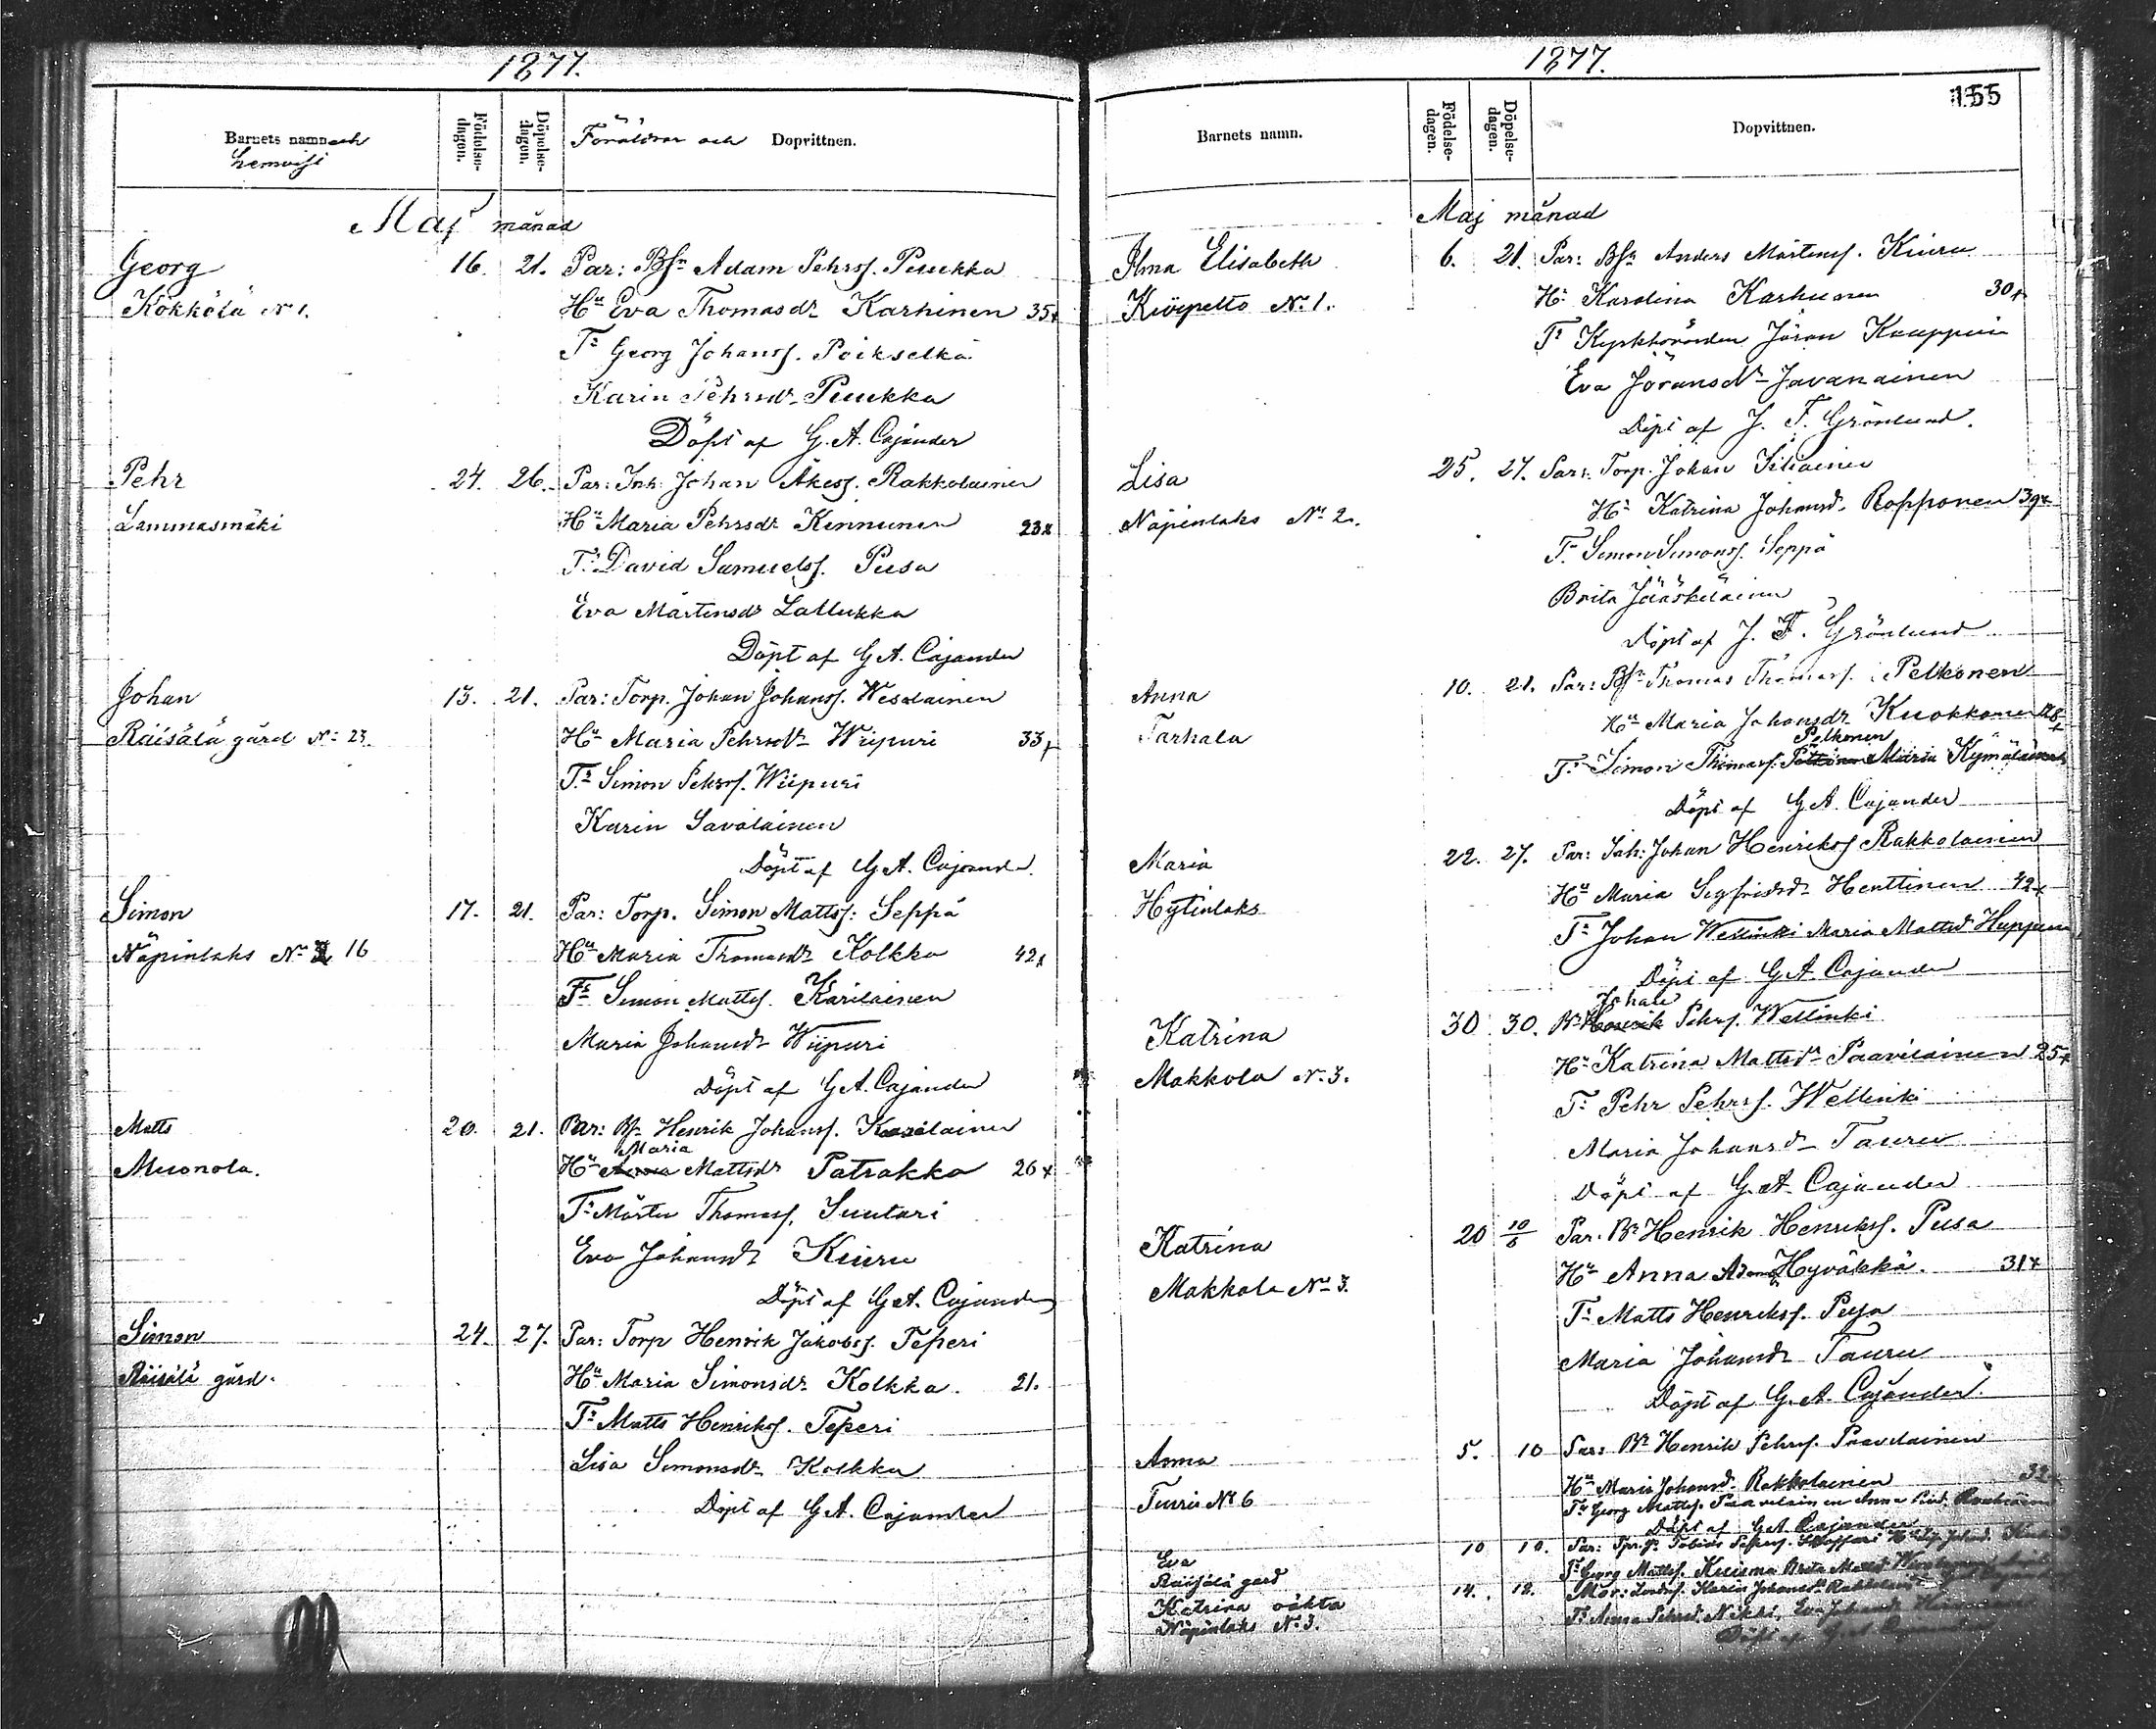 1877.
Barnets namn och hemvist
Födelse-dagen.
Döpelse-dagen.
Föräldrar och Dopvittnen.
Maj månad
Georg 16. 21. Par: Bs. Adam Pehrss. Puukka
Kökkölä No 1. Hu Eva Thomasdr Karhinen 35
Tr Georg Johanss. Poikselkä
Karin Pehrsdr Puukka
Döpt af G. A. Cajander
Pehr 24. 26. Par: Inh. Johan Åkess. Rakkolainen
Lammasmäki Hu Maria Pehrsdr Kinnunen 23
Tr David Samuelss. Pusa
Eva Mårtensdr Lallukka
Döpt af G. A. Cajander
Johan 13. 21. Par: Torp. Johan Johanss. Wesalainen
Räisälä gård No 23. Hu Maria Pehrsdr Wiipuri 33
Tr Simon Pehrss. Wiipuri
Karin Savolainen
Döpt af G. A. Cajander
Simon 17. 21. Par: Torp. Simon Mattss: Seppä
Näpinlaks No 16 Hu Maria Thomasdr Kolkka 42
Tr Simon Mattss. Karilainen
Maria Johansdr Wiipuri
Döpt af G. A. Cajander
Matts 20. 21. Par: Bs. Henrik Johanss.
Maria
Muonola. Hu Anna Mattsdr Patrakka 26
Tr Mårten Thomass. Suutari
Eva Johansdr Kiuru
Döpt af G. A. Cajander
Simon 24. 27. Par: Torp Henrik Jakobss. Teperi
Räisälä gård. Hu Maria Simonsdr Kolkka. 21.
Tr Matts Henrikss. Teperi
Lisa Simonsdr Kolkka
Döpt af G. A. Cajander
1877.
155
Barnets namn.
Födelse-dagen.
Döpelse-dagen.
Dopvittnen.
Maj månad
Alma Elisabeth 6. 21. Par: Bs. Anders Mårtenss. Kiuru
Kivipelto No 1. Hu Karolina Karhunen 30
Tr Kyrkvärden Jöran Kauppin
Eva Jöransdr Javanainen
Döpt af J. F. Grönlund.
Lisa 25. 27. Par: Torp. Johan
Näpinlaks No 2. Hu Katrina Johansdr Ropponen 39
Tr Simon Simonss. Seppä
Brita Jääskeläinen
Döpt af J. F. Grönlund
Anna 10. 21. Par: Bs. Thomas Thomass. Pelkonen
Tarhala Hu Maria Johansdr Kuokkanen 28
Pelkonen
Tr Simon Thomass. Maria Kymäläinen
Döpt af G. A. Cajander
Maria 22. 27. Par: Inh: Johan Henrikss Rakkolainen
Hytinlaks Hu Maria Sigfridsdr Henttinen 42
Tr Johan Wellinki Maria Mattsdr Huppunen
Döpt af G. A. Cajander
Johan
Katrina 30. 30. Br Henrik Pehrs. Wellinki
Makkola No 3. Hu Katrina Mattsdr Paavilainen 25
Tr Pehr Pehrss. Wellinki
Maria Johansdr Tauru
Döpt af G. A. Cajander
Katrina 20 10/6 Par. Br Henrik Henrikss. Pusa
Makkola No 3. Hu Anna Adamsdr Hyväkkä. 31
Tr Matts Henrikss. Pusa
Maria Johansdr Tauru
Döpt af G. A. Cajander.
Anna 5. 10 Par: Br Henrik Pehrss. Paavilainen
Tiuri No 6 Hu Maria Johansd. Rakkolainen 32
Tr Georg Mattss. Paavilainen Anna
Döpt af G. A. Cajander
Eva 10 10. Par: Tobias
Räisälä gård Tr Georg Mattss. Kuisma Brita
Katrina oäkta 14. 12. Mor: Karin Johansdr
Näpinlaks No 3. Tr Anna Pehrsd. Nikki, Eva
Döpt af